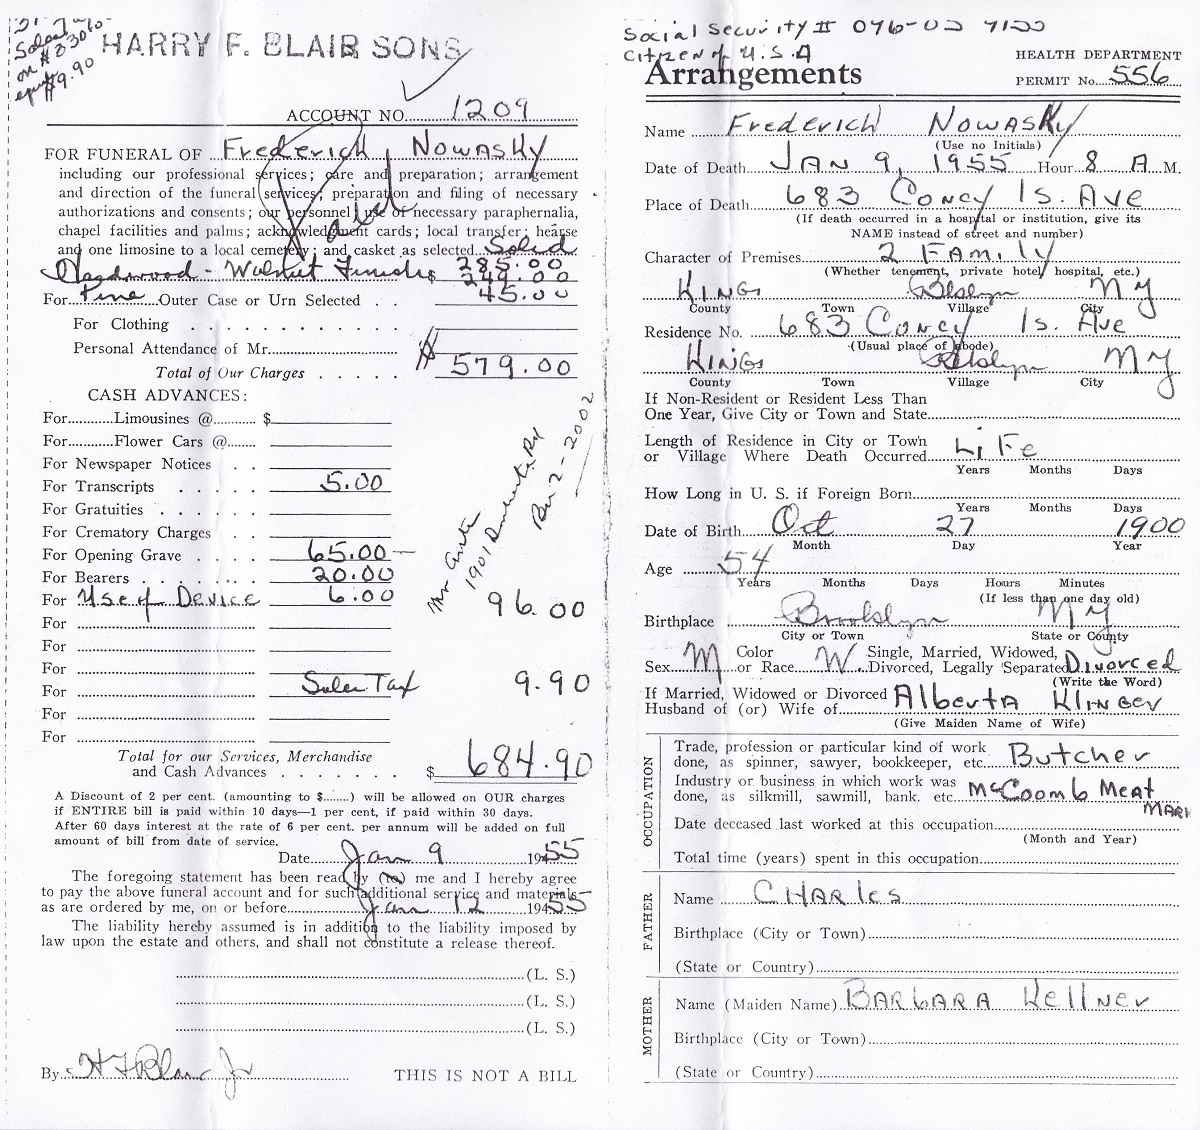 Sales Tax
on $330.00
equal $9.90
HARRY F. BLAIR SONS
ACCOUNT NO. 1209
FOR FUNERAL OF Frederick Nowasky
including our professional services; care and preparation; arrangement
and direction of the funeral services; preparation and filing of necessary
authorizations and consents; our personnel use of necessary paraphernalia,
chapel facilities and palms; acknowledgment cards; local transfer; hearse
and one limosine to a local cemetery; and casket as selected Solid
Hardwood - Walnut Finish $ 285.00
249.00
For Pine Outer Case or Urn Selected . . 45.00
For Clothing . . . . . . . . . . .
Personal Attendance of Mr.
Total of Our Charges . . . . . $ 579.00
CASH ADVANCES:
For Limousines @ $
For Flower Cars @
For Newspaper Notices . .
For Transcripts . . . . . 5.00
For Gratuities . . . . . .
For Crematory Charges . .
For Opening Grave . . . . 65.00
For Bearers . . . . . . . 20.00
For Use of Device 6.00 96.00
For
For
For
For Sales Tax 9.90
For
For
Total for our Services, Merchandise
and Cash Advances . . . . . . . $ 684.90
Paid
1901
Rm 2-2002
A Discount of 2 per cent. (amounting to $........) will be allowed on OUR charges
if ENTIRE bill is paid within 10 days—1 per cent, if paid within 30 days.
After 60 days interest at the rate of 6 per cent. per annum will be added on full
amount of bill from date of service.
Date Jan 9 1955
The foregoing statement has been read by (to) me and I hereby agree
to pay the above funeral account and for such additional service and materials
as are ordered by me, on or before Jan 12 1955
The liability hereby assumed is in addition to the liability imposed by
law upon the estate and others, and shall not constitute a release thereof.
(L. S.)
(L. S.)
(L. S.)
By H F Blair Jr THIS IS NOT A BILL
Social Security # 076-03
Citizen of U.S.A
Arrangements
HEALTH DEPARTMENT
PERMIT No. 556
Name Frederich Nowasky
(Use no Initials)
Date of Death JAN 9, 1955 Hour 8 A M.
Place of Death 683 Coney Is. Ave
(If death occurred in a hospital or institution, give its
NAME instead of street and number)
Character of Premises 2 Family
(Whether tenement, private hotel, hospital, etc.)
Kings Bklyn NY
County Town Village City
Residence No. 683 Coney Is. Ave
(Usual place of abode)
Kings Bklyn NY
County Town Village City
If Non-Resident or Resident Less Than
One Year, Give City or Town and State
Length of Residence in City or Town
or Village Where Death Occurred Life
Years Months Days
How Long in U. S. if Foreign Born
Years Months Days
Date of Birth Oct 27 1900
Month Day Year
Age 54
Years Months Days Hours Minutes
(If less than one day old)
Birthplace Brooklyn NY
City or Town State or County
Sex M Color or Race W Single, Married, Widowed,
Divorced, Legally Separated Divorced
(Write the Word)
If Married, Widowed or Divorced
Husband of (or) Wife of Alberta Klinger
(Give Maiden Name of Wife)
OCCUPATION
Trade, profession or particular kind of work
done, as spinner, sawyer, bookkeeper, etc. Butcher
Industry or business in which work was
done, as silkmill, sawmill, bank. etc. McCoomb Meat Mark
Date deceased last worked at this occupation
(Month and Year)
Total time (years) spent in this occupation
FATHER
Name CHARles
Birthplace (City or Town)
(State or Country)
MOTHER
Name (Maiden Name) BARbARA Kellner
Birthplace (City or Town)
(State or Country)